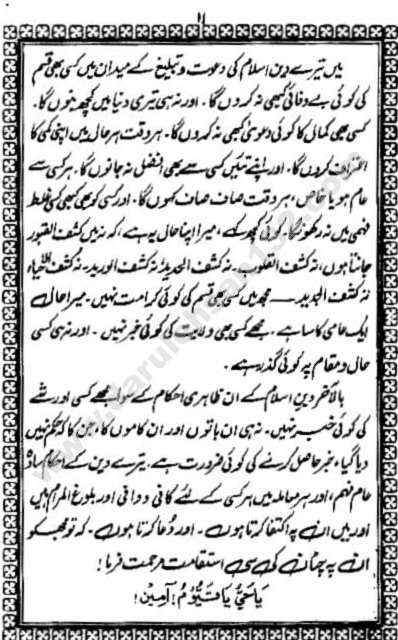 ۱۱
میں تیرے دینِ اسلام کی دعوت و تبلیغ کے میدان میں کسی بھی قسم
کی کوئی بے وفائی کبھی نہ کروں گا۔ اور نہ ہی تیری دنیا میں کچھ بنوں گا۔
کسی بھی کمال کا کوئی دعویٰ کبھی نہ کروں گا۔ ہر وقت ہر حال میں اپنی کمی کا
اعتراف کروں گا۔ اور اپنے تئیں کسی سے بھی افضل نہ جانوں گا۔ ہر کسی سے
عام ہو یا خاص، ہر وقت صاف صاف کہوں گا۔ اور کسی کو بھی کبھی کسی غلط
فہمی میں نہ رکھونگا۔ کوئی کچھ کہے، میرا اپنا حال یہ ہے، کہ نہ میں کشف القبور
جانتا ہوں، نہ کشف القلوب۔ نہ کشف الحدید نہ کشف الورید۔ نہ کشف
نہ کشف الجدید — مجھ میں کسی بھی قسم کی کوئی کرامت نہیں۔ میرا حال
ایک عامی کا سا ہے۔ مجھے کسی بھی ولایت کی کوئی خبر نہیں۔ اور نہ ہی کسی
حال و مقام پہ کوئی گذر ہے۔
بالآخر دینِ اسلام کے ان ظاہری احکام کے سوا مجھے کسی اور شے
کی کوئی خبر نہیں۔ نہ ہی ان باتوں اور ان کاموں کا، جن کا حکم نہیں
دیا گیا، خبر حاصل کرنے کی کوئی ضرورت ہے۔ تیرے دین کے احکام سادہ
عام فہم، اور ہر معاملہ میں ہر کسی کے لئے کافی و وافی اور بلوغ المرام ہیں
اور میں ان پہ اکتفا کرتا ہوں۔ اور دُعا کرتا ہوں۔ کہ تو مجھ کو
ان پہ چٹان کی سی استقامت مرحمت فرما!
یَا حَیُّ یَا قَیُّوْمُ! آمِیْن!
www.darulehsan132.com